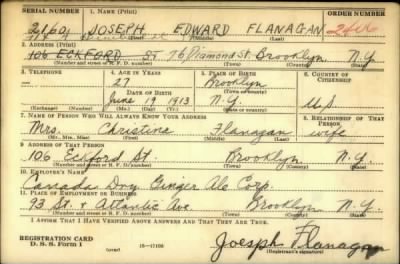 SERIAL NUMBER 1. NAME (Print) ORDER NUMBER
JOSEPH EDWARD FLANAGAN
(First) (Middle) (Last)
2. ADDRESS (Print)
106 ECKFORD ST 76 Diamond St. Brooklyn N.Y.
(Number and street or R. F. D. number) (Town) (County) (State)
3. TELEPHONE 4. AGE IN YEARS 5. PLACE OF BIRTH 6. COUNTRY OF CITIZENSHIP
— 27 Brooklyn
DATE OF BIRTH (Town or county)
June 19 1913 N.Y. U.S
(Exchange) (Number) (Mo.) (Day) (Yr.) (State or country)
7. NAME OF PERSON WHO WILL ALWAYS KNOW YOUR ADDRESS 8. RELATIONSHIP OF THAT PERSON
Mrs. Christine Flanagan wife
(Mr., Mrs., Miss) (First) (Middle) (Last)
9. ADDRESS OF THAT PERSON
106 Eckford St. Brooklyn N.Y.
(Number and street or R. F. D. number) (Town) (County) (State)
10. EMPLOYER'S NAME
Canada Dry Ginger Ale Corp.
11. PLACE OF EMPLOYMENT OR BUSINESS
93 St. & Atlantic Ave Brooklyn N.Y.
(Number and street or R. F. D. number) (Town) (County) (State)
I AFFIRM THAT I HAVE VERIFIED ABOVE ANSWERS AND THAT THEY ARE TRUE.
REGISTRATION CARD
D. S. S. Form 1 (over) 16—17105 Joesph Flanagan
(Registrant's signature)